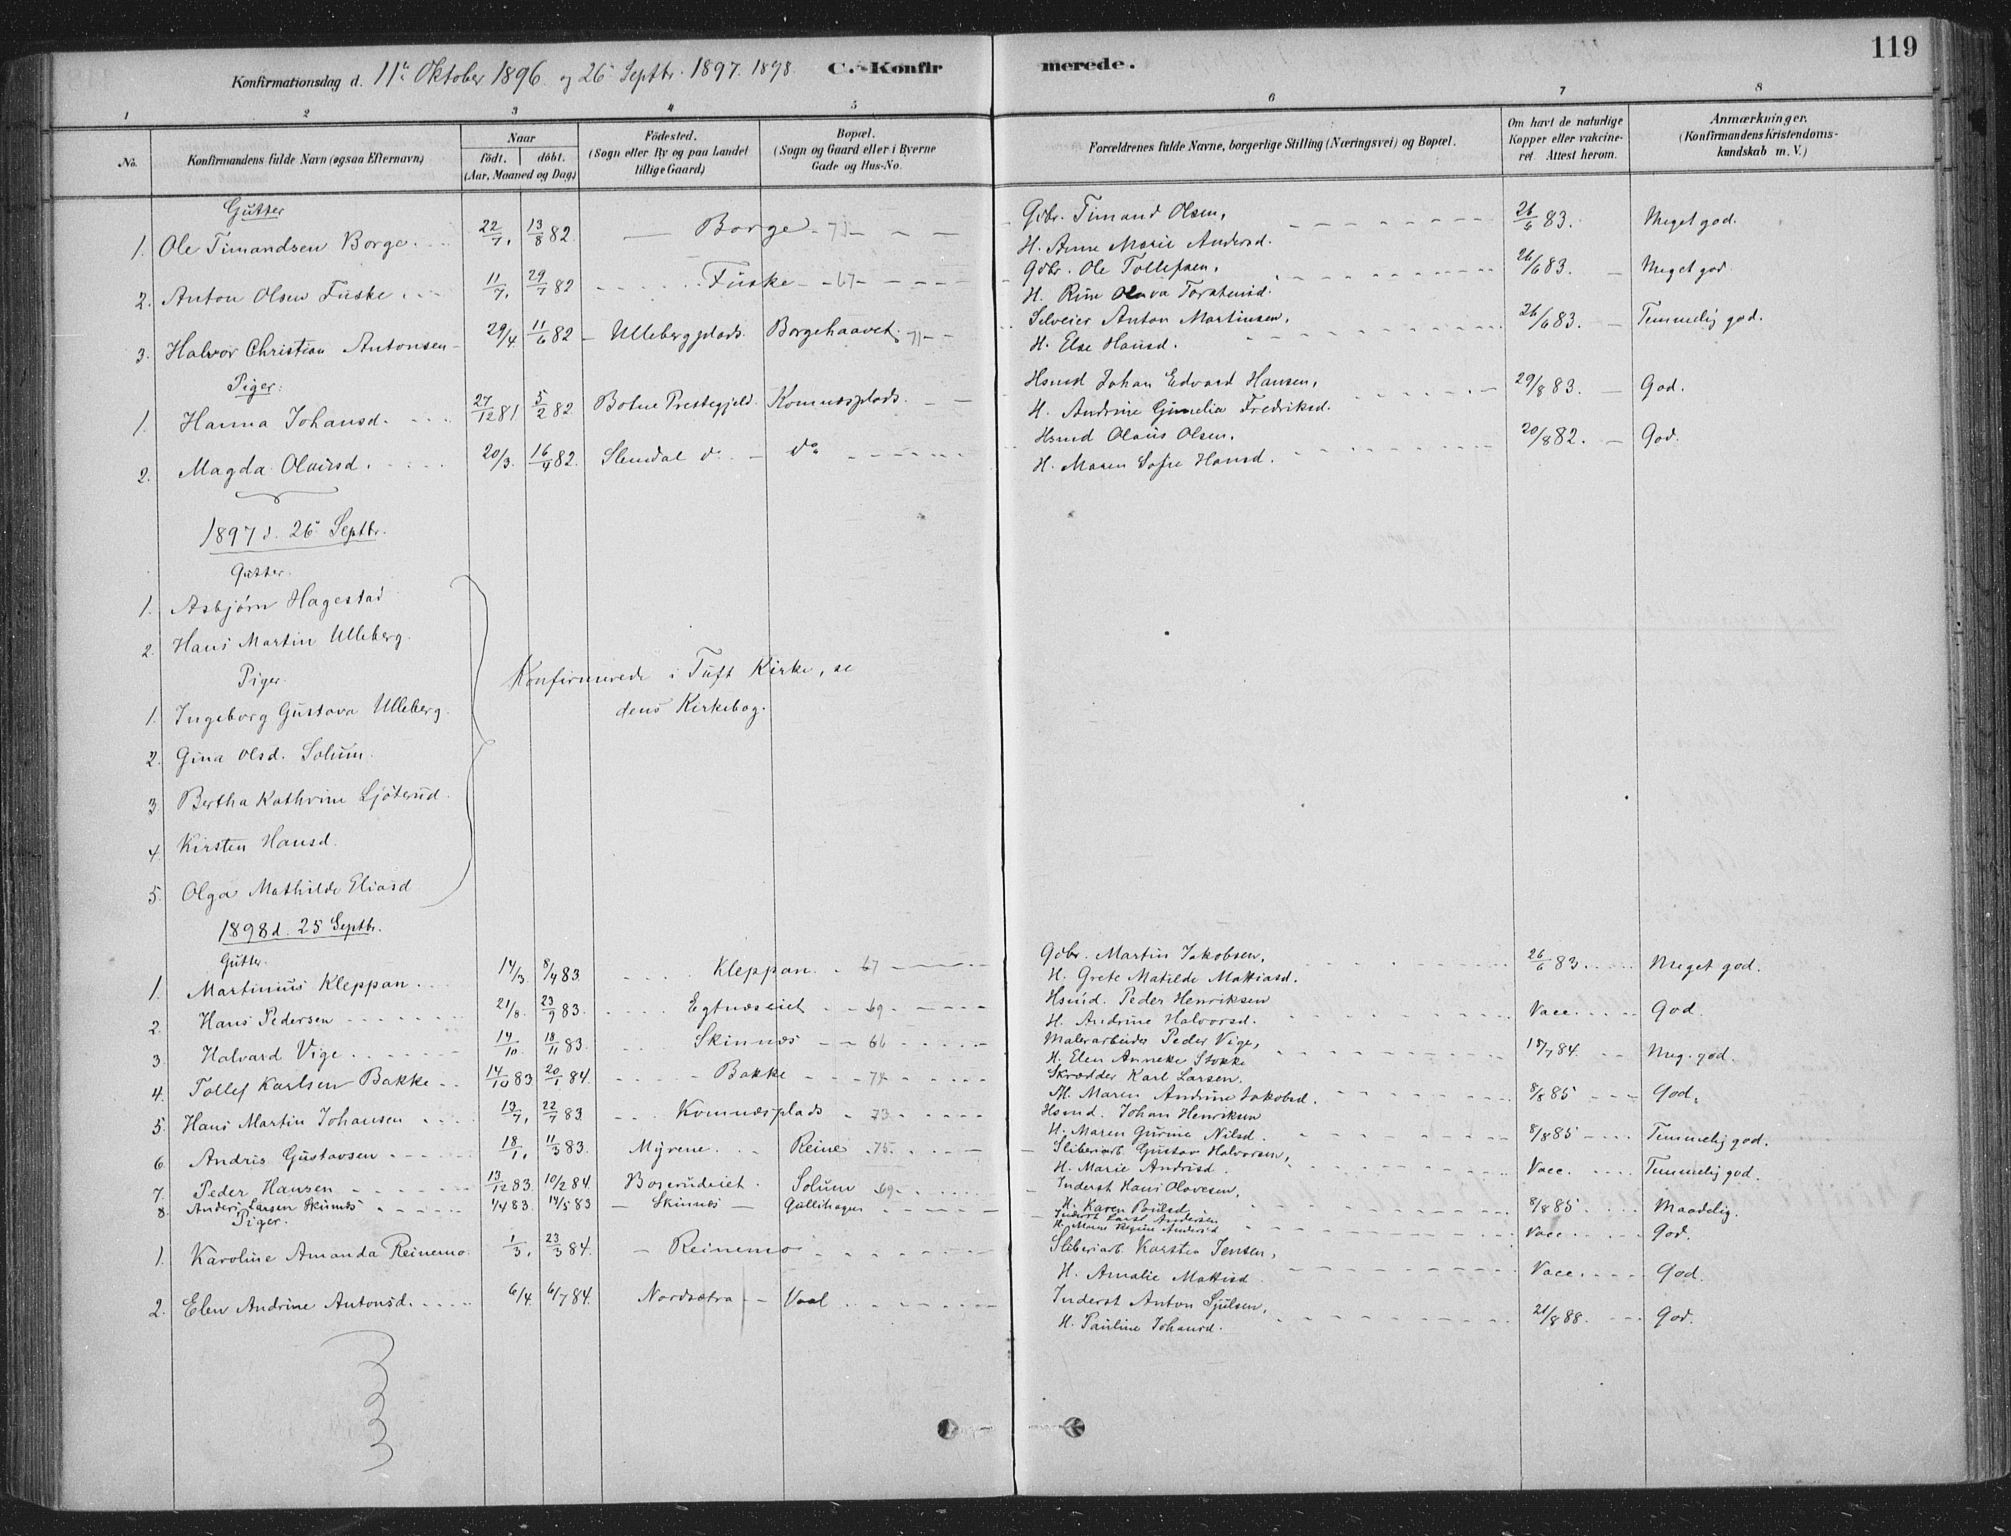 119
Konfirmationsdag d. 11te Oktober 1896 og 26 Septbr. 1897. 1898. C. Konfirmerede.
1 2 3 4 5 6 7 8
No. Konfirmandens fulde Navn (ogsaa Efternavn) Naar Födt. döbt. (Aar, Maaned og Dag.) Födested. (Sogn eller By og paa Landet tillige Gaard) Bopæl. (Sogn og Gaard eller i Byerne Gade og Hus-No. Forældrenes fulde Navne, borgerlige Stilling (Næringsvei) og Bopæl. Om havt de naturlige Kopper eller vakcineret. Attest herom. Anmærkninger. (Konfirmandens Kristendomskundskab m. V.)
Gutter
1. Ole Timandsen Borge 22/7. 13/8 82 Borge 71 Gdbr. Timand Olsen, H. Anne Marie Andersd. 26/6 83. Meget god.
2. Anton Olsen Fuske 11/7. 29/7 82 Fuske 67 Gdbr. Ole Tollefsen, H. Rine Olava Torstensd. 26/6 83. Meget god.
3. Halvor Christian Antonsen 29/4. 11/6 82 Ullebergplads Borgehaavet 71 Selveier Anton Martinsen, H. Else Hansd. 26/6 83. Temmelig god.
Piger:
1. Hanna Johansd. 27/12 81 5/2 82 Botne Prestegjeld Komnæsplads Hsmd Johan Edvard Hansen, H. Andrine Gunelia Fredriksd. 29/8 83. God.
2. Magda Olausd. 20/3. 16/4 82. do do Hsmd Olaus Olsen. H. Maren Sofie Hansd. 20/8 82. God.
1897 d. 26 Septbr.
Gutter.
1. Asbjörn Hagestad
2. Hans Martin Ulleberg.
Piger.
Konfirmerede i Tuft Kirke, se
dens Kirkebog.
1. Ingeborg Gustava Ulleberg.
2. Gina Olsd. Solum.
3. Bertha Kathrine Ljöterud.
4 Kirsten Hansd.
5. Olga Mathilde Eliasd
1898 d. 25 Septbr.
Gutter.
1. Martinius Kleppan 14/3 8/4 83 Kleppan 67 Gdbr. Martin Jakobsen, H. Grete Matilde Mattiasd. 26/6 83. Meget god.
2. Hans Pedersen 21/8. 23/9 83. Egtnæseiet 69 Hsmd. Peder Henriksen H. Andrine Halvorsd. Vacc. God.
3 Halvard Vige 14/10. 18/11 83. Skinnæs 66 Malerarbeider Peder Vige, H. Elen Anneke Stokke 18/7 84. Meg. god.
4. Tollef Karlsen Bakke 14/10 83 20/1 84. Bakke 74 Skrædder Karl Larsen. H. Maren Andrine Jakobsd. 8/8 85 God.
5. Hans Martin Johansen 13/7. 22/7 83 Komnæsplads 73 Hsmd. Johan Henriksen H. Maren Gurine Nilsd. 8/8 85 Temmelig god.
6. Andris Gustavsen 18/1. 11/3 83. Myrene Reine 75. Sliberiarb. Gustav Halvorsen, H. Marie Andrisd. Vacc. Temmelig god.
7. Peder Hansen 13/12 83. 10/2 84. Boserudeiet Solum 69 Inderst Hans Olavesen, H. Karen Poulsd. 8/8 85 Maadelig.
8. Anders Larsen Skinnæs 1/4 83 14/5 83 Skinnæs Gullihagen Inderst Lars Andersen H. Maren Regine Andersd Vacc. God.
Piger.
1. Karoline Amanda Reinemo. 1/3. 23/3 84. Reinemo Sliberiarb. Karsten Jensen, H. Amalie Mattisd. Vacc. God.
2. Elen Andrine Antonsd. 6/4. 6/7 84. Nordsætra Vaal Inderst Anton Sjulsen, H. Pauline Johansd. 21/8 88. God.